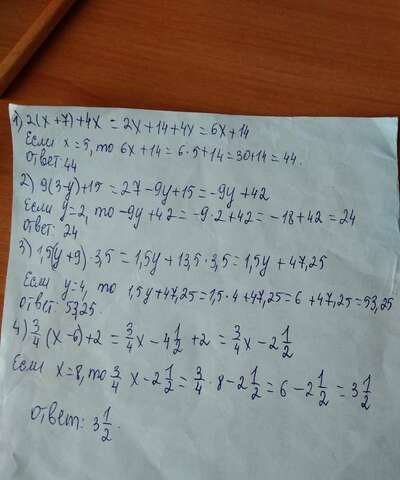 1) 2(x+7)+4x = 2x+14+4x = 6x+14
Если x=5, то 6x+14 = 6·5+14=30+14=44.
Ответ: 44
2) 9(3-y)+15 = 27-9y+15 = -9y+42
Если y=2, то -9y+42 = -9·2+42 = -18+42 = 24
Ответ: 24
3) 1,5(y+9)·3,5 = 1,5y+13,5·3,5 = 1,5y+47,25
Если y=4, то 1,5y+47,25=1,5·4+47,25=6+47,25=53,25
Ответ: 53,25.
4) 3/4 (x-6)+2 = 3/4 x - 4 1/2 + 2 = 3/4 x - 2 1/2
Если x=8, то 3/4 x - 2 1/2 = 3/4 · 8 - 2 1/2 = 6 - 2 1/2 = 3 1/2
Ответ: 3 1/2.